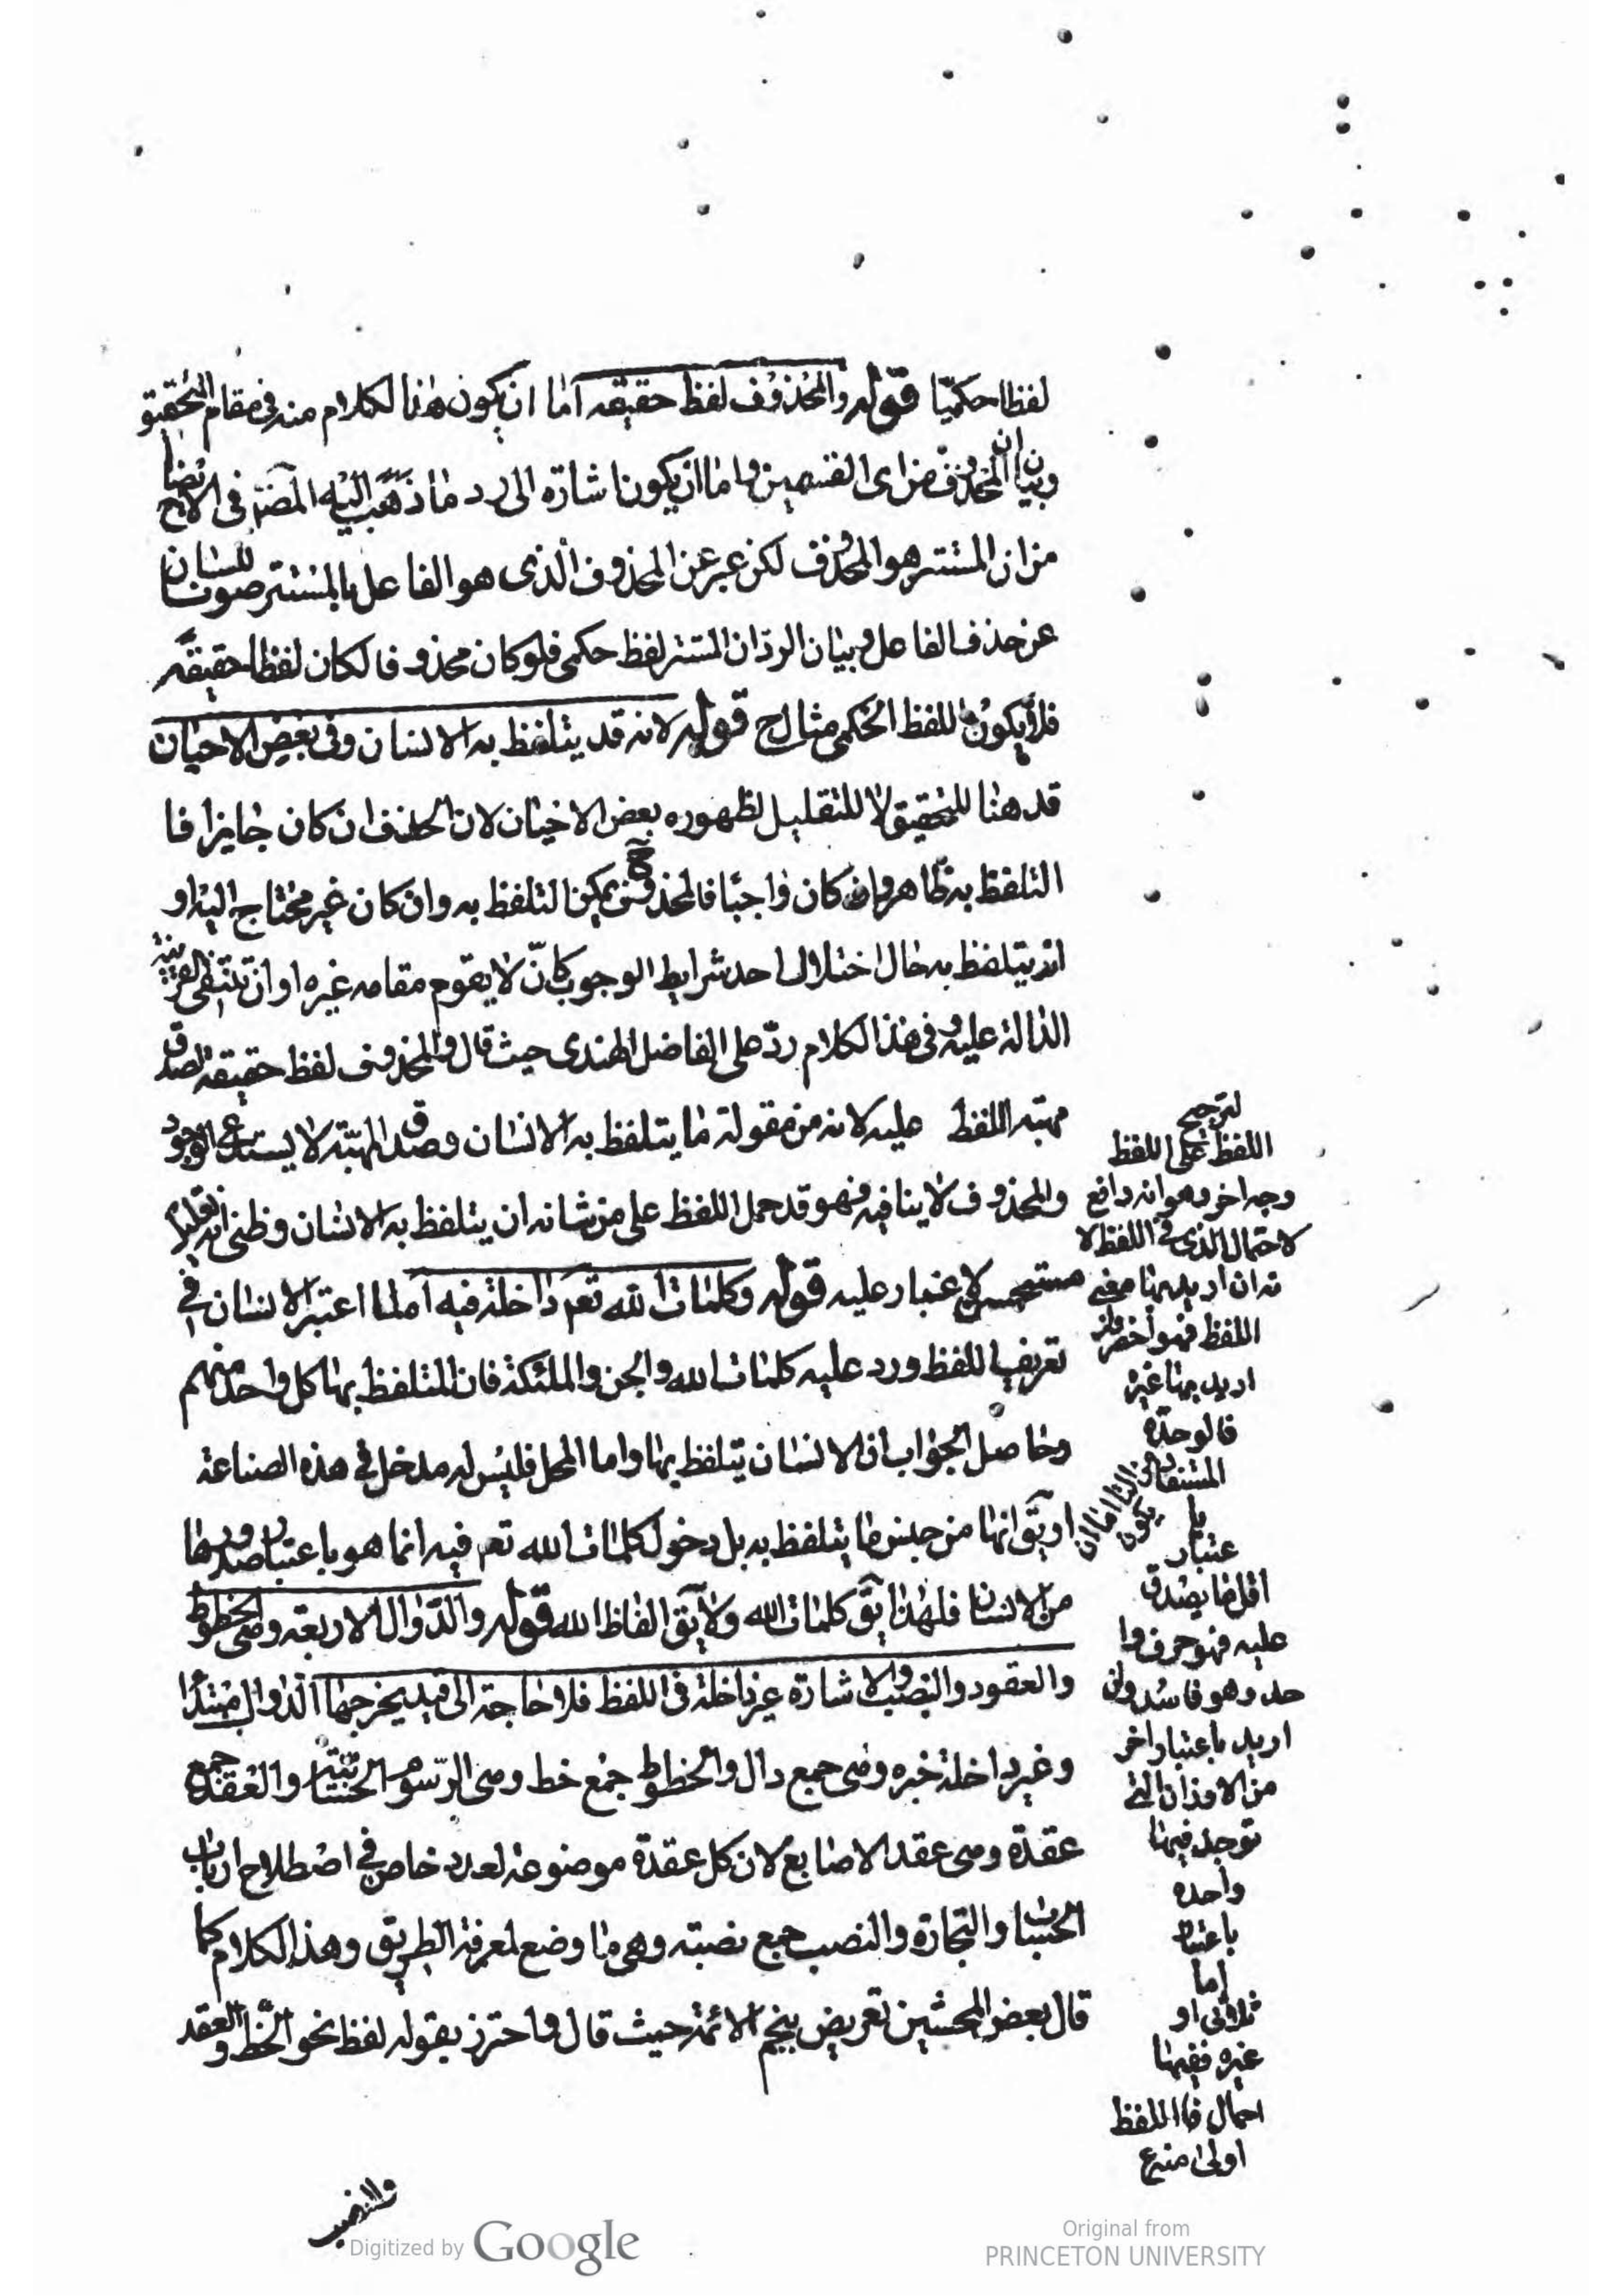 لفظا حكميّا قوله والمحذوف لفظ حقيقة اما ان يكون هذا الكلام منه في مقام التحقيق
وبيان ان المحذوف من اى القسمين واما ان يكون اشارة الى رد ما ذهب اليه المصنف في الايضاح
من ان المستتر هو المحذوف لكن عبر عن المحذوف الذى هو الفاعل بالمستتر صونا للسان
عن حذف الفاعل وبيان الردّ ان المستتر لفظ حكمى فلو كان محذوفا لكان لفظا حقيقة
فلا يكون اللفظ الحكمى مثال ح قوله لانه قد يتلفظ به الانسان وفى بعض الاحيان
قد هنا للتحقيق لا للتقليل لظهوره بعض الاحيان لان الحذف ان كان جايزا فا
التلفظ به ظاهر وان كان واجبا فالمحذوف ح يمكن التلفظ به وان كان غير محتاج اليه او
انه يتلفظ به حال اختلال احد شرايط الوجوب كانّ لا يقوم مقامه غيره او ان تنتفى القرينة
الدالة عليه وفى هذا الكلام ردّ على الفاضل الهندى حيث قال والمحذوف لفظ حقيقة لصدق
مهيّة اللفظ عليه لانه من مقولة ما يتلفظ به الانسان وصدق المهيّة لا يستدعى الوجود
والمحذوف لا ينافيه فهو قد حمل اللفظ على من شانه ان يتلفظ به الانسان وظنى انه
مستحسن لا غبار عليه قوله وكلمات الله تعم داخلة فيه آ لما اعتبر الانسان في
تعريف اللفظ ورد عليه كلمات الله والجن والملئكة فان المتلفظ بها كل واحد منهم
وحاصل الجواب ان الانسان يتلفظ بها واما المحل فليس له مدخل في هذه الصناعة
او يق انها من جنس ما يتلفظ به بل دخول كلمات الله تعم فيه انما هو باعتبار صدورها
من الانسان فلهذا يق كلمات الله ولا يق الفاظ الله قوله والدّوال الاربعة وهى الخطوط
والعقود والنصب والاشارة غير داخلة فى اللفظ فلا حاجة الى قيد يخرجها الدوال مبتدا
وغير داخلة خبره وهى جمع دال والخطوط جمع خط وهى الرسوم الحسّيّة والعقد جمع
عقدة وهى عقد الاصابع لان كل عقدة موضوعة لعدد خاص في اصطلاح ارباب
الحساب والتجارة والنصب جمع نصبة وهى ما وضع لمعرفة الطريق وهذا الكلام كما
قال بعض المحشين تعريض بنجم الائمة حيث قال واحترز بقوله لفظ نحو الخط والعقد
والنصب
لترجيح
اللفظ على اللفظ
وجه اخر وهو انه دافع
لاحتمال الذى في اللفظ لا
نه ان اريد بها معنى
اللفظ فهو اخصر وان
اريد بها غيره
فالوحدة
المستفادة من التا اما ان يكون
با
عتبار
اقل ما يصدق
عليه فهو حرف وا
حد وهو فاسد وان
اريد باعتبار اخر
من الاوزان التى
توجد فيها
واحده
باعتبار
اما
ثلاثى او
غيره ففيها
احمال فااللفظ
اولى منه ع
Digitized by Google
Original from
PRINCETON UNIVERSITY